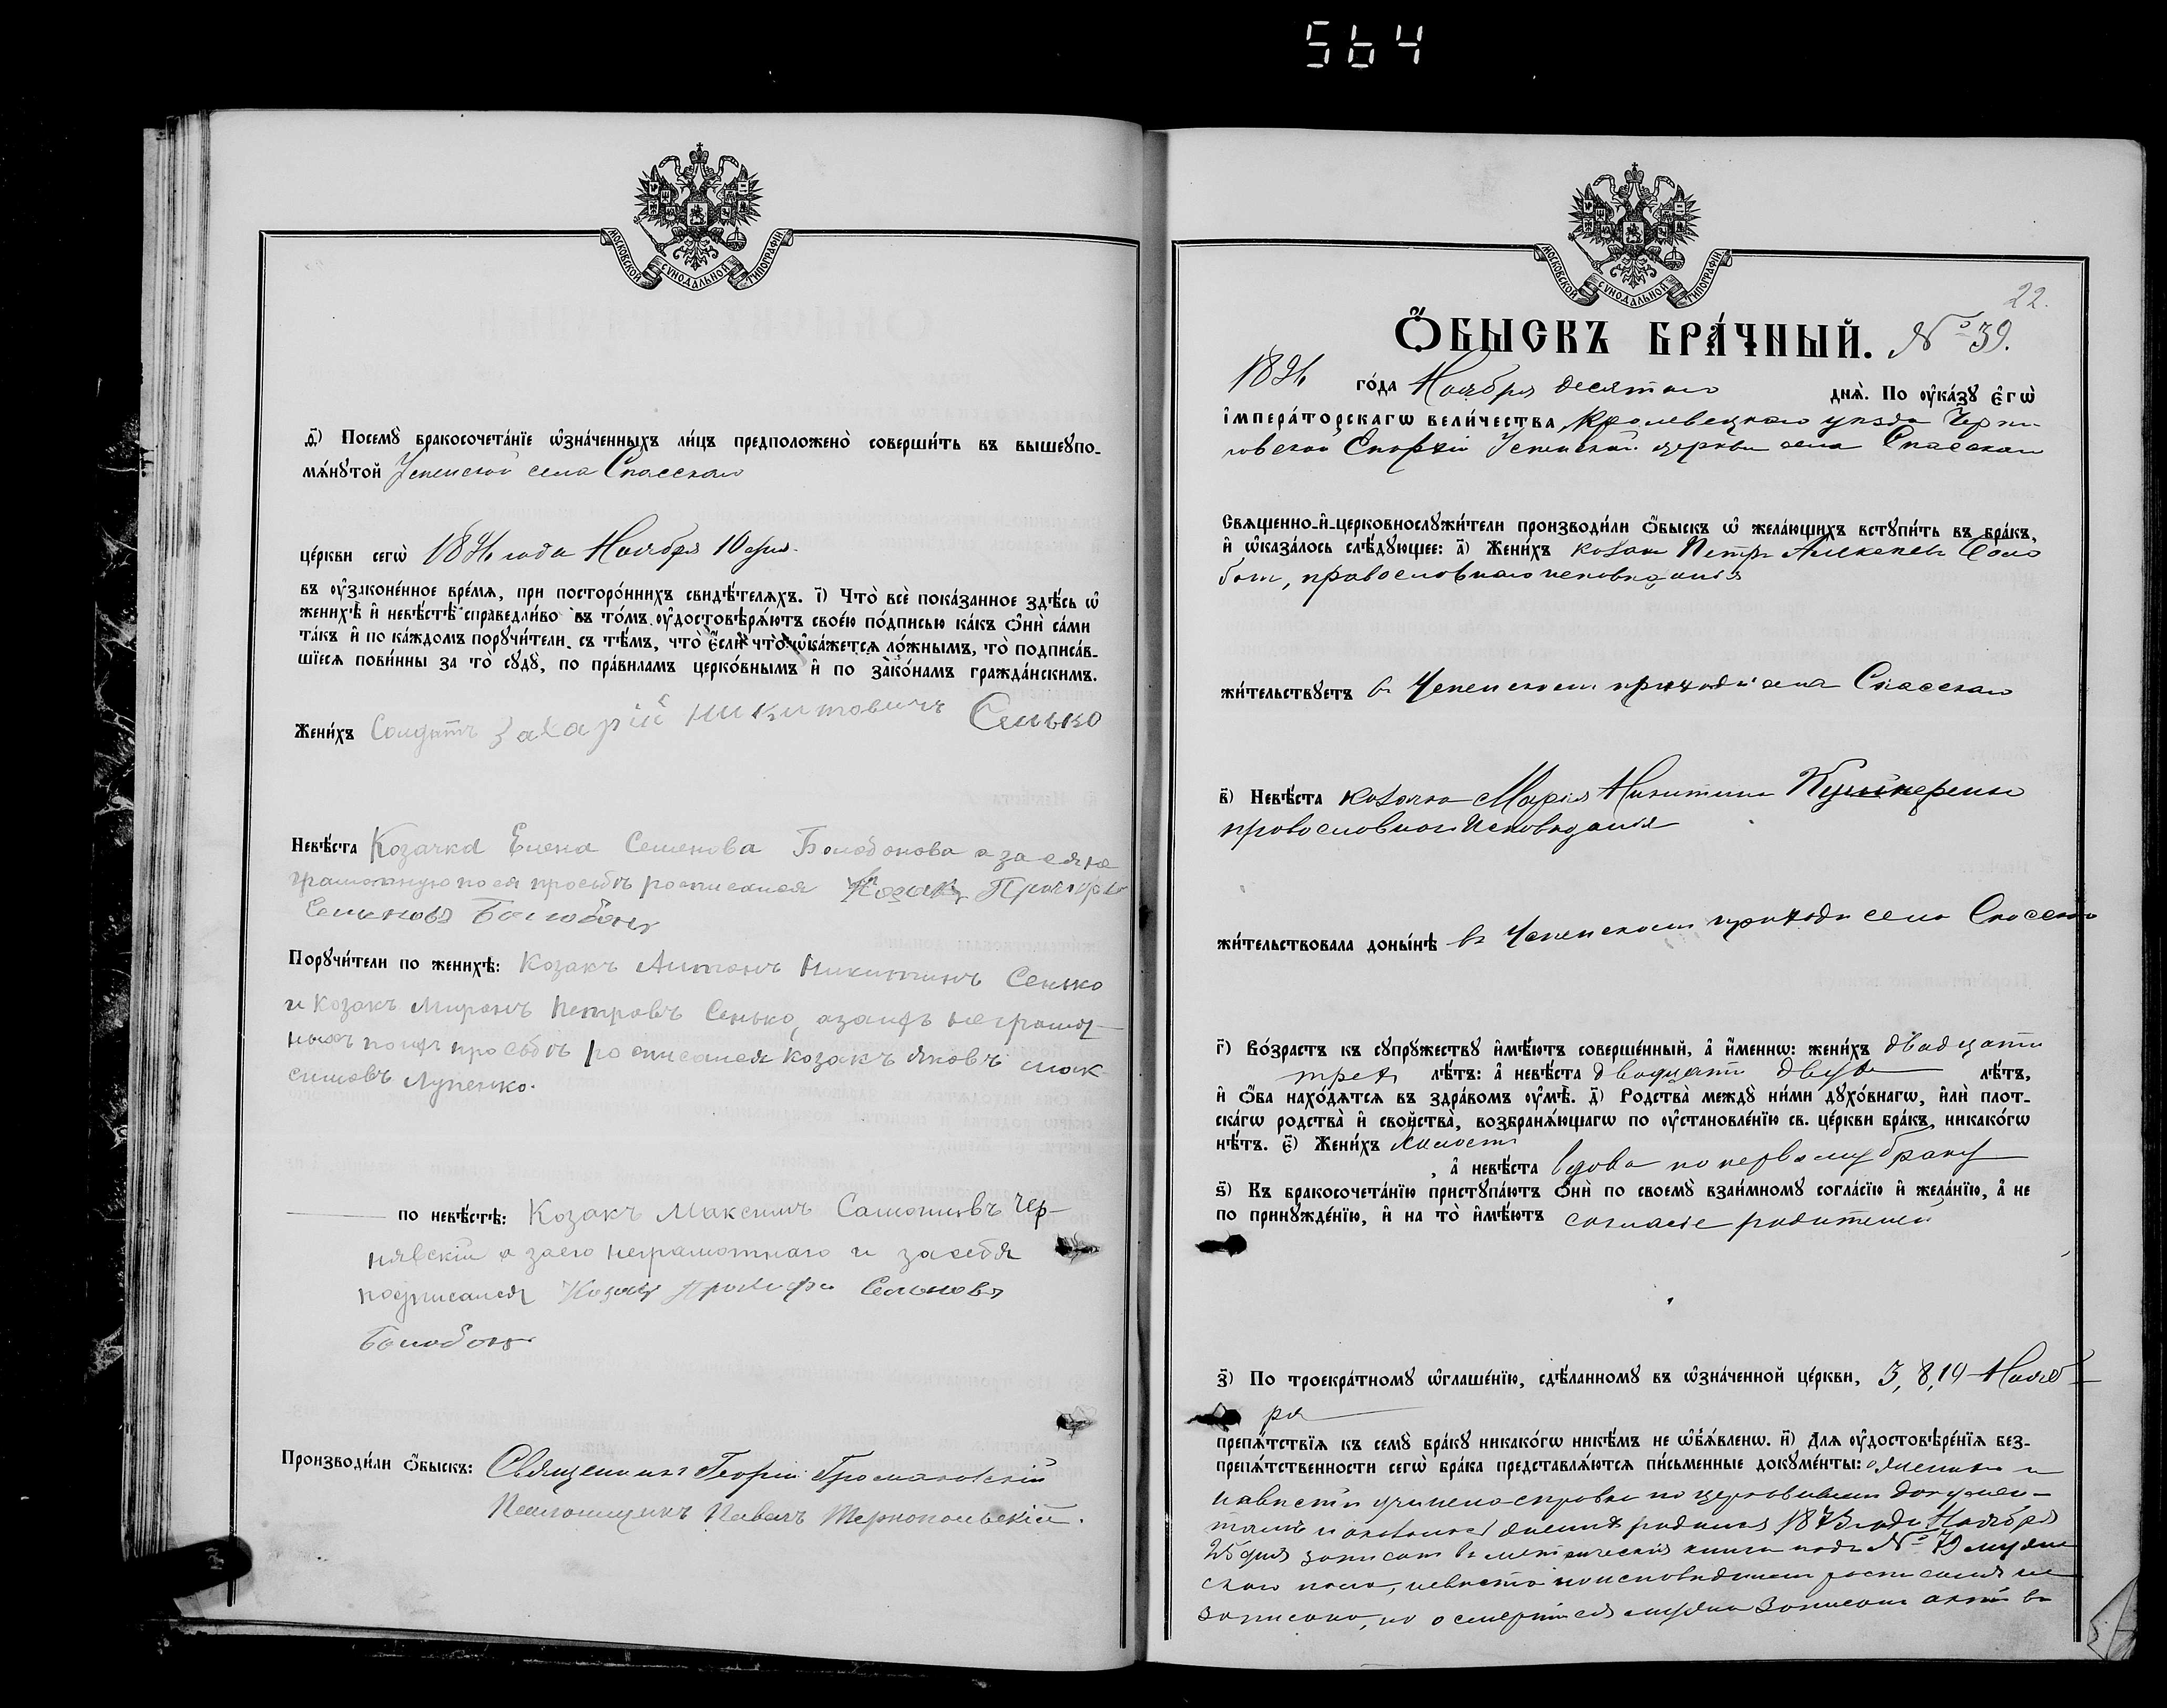 564
МОСКОВСКОЙ СѴНОДАЛЬНОЙ ТИПОГРАФІИ
д҃і) Посемꙋ̀ бракосочета́нїе ѡ҆зна́ченныхъ ли́цъ предположено̀ соверши́ть въ вышеꙋпо-
мѧ́нꙋтой Успенской села Спасскаго
це́ркви сегѡ̀ 1896 года Ноября 10 дня
въ ᲂу҆зако́ненное вре́мѧ, при посторо́ннихъ свидѣ́телѧхъ. і҃) Что̀ всѐ пока́занное здѣ́сь ѡ҆
женихѣ̀ и҆ невѣ́стѣ справедли́во въ то́мъ ᲂу҆достовѣрѧ́ютъ свое́ю по́дписью ка́къ ѻ҆нѝ са́ми
та́къ и҆ по ка́ждомъ порꙋчи́тели, съ тѣ́мъ, что̀ є҆́сли что̀ ѡ҆ка́жетсѧ ло́жнымъ, то̀ подписа́в-
шїесѧ пови́нны за то̀ сꙋдꙋ̀, по пра́виламъ церко́внымъ и҆ по зако́намъ гражда́нскимъ.
Жени́хъ Солдатъ Захарій Никитовичъ Сенько
Невѣ́ста Козачка Елена Семенова Болобонова а за ея не
грамотную по ея просьбѣ росписался Козакъ Прокофій
Семеновъ Болобонъ
Порꙋчи́тели по женихѣ̀: Козакъ Антонъ Никитинъ Сенько
и Козакъ Миронъ Петровъ Сенько, а за ихъ неграмот-
ныхъ по ихъ просьбѣ росписался козакъ Яковъ Мак
симовъ Лупенко.
по невѣ́стѣ: Козакъ Максимъ Самойловъ Чер-
нявскій а за его неграмотнаго и за себя
подписался Козакъ Прокофій Семеновъ
Болобонъ
Производи́ли ѻ҆́быскъ: Священникъ Георгій Громаковскій
Псаломщикъ Павелъ Тернопольскій.
МОСКОВСКОЙ СѴНОДАЛЬНОЙ ТИПОГРАФІИ
22.
Ѻ҆́БЫСКЪ БРА́ЧНЫЙ. № 39.
1896 го́да Ноября десятаго днѧ̀. По ᲂу҆ка́зꙋ є҆гѡ̀
і҆мпера́торскагѡ вели́чества, Кролевецкаго уѣзда Черни
говской Епархіи Успенской церкви села Спасскаго
Свѧщенно-и҆-церковнослꙋжи́тели производи́ли ѻ҆́быскъ ѡ҆ жела́ющихъ встꙋпи́ть въ бра́къ,
и҆ ѡ҆каза́лось слѣ́дꙋющее: а҃) Жени́хъ козакъ Петръ Алексѣевъ
православнаго исповѣданія
жи́тельствꙋетъ въ Успенскомъ приходѣ села Спасскаго
в҃) Невѣ́ста козачка Марія Никитина
православнаго исповѣданія
жи́тельствовала доны́нѣ въ Успенскомъ приходѣ села Спасскаго
г҃) Во́зрастъ къ сꙋпрꙋжествꙋ и҆мѣ́ютъ соверше́нный, а҆ и҆́меннѡ: жени́хъ двадцати
трехъ лѣ́тъ: а҆ невѣ́ста двадцати двухъ лѣ́тъ,
и҆ ѻ҆́ба нахо́дѧтсѧ въ здра́вомъ ᲂу҆мѣ̀. д҃) Родства̀ междꙋ ни́ми дꙋхо́внагѡ, и҆лѝ плот-
ска́гѡ родства̀ и҆ сво́йства̀, возбранѧ́ющагѡ по ᲂу҆становле́нїю св. це́ркви бра́къ, никако́гѡ
нѣ́тъ. є҃) Жени́хъ холостъ
, а҆ невѣ́ста вдова по первому браку
ѕ҃) Къ бракосочета́нїю пристꙋпа́ютъ ѻ҆нѝ по своемꙋ̀ взаи́мномꙋ согла́сїю и҆ жела́нїю, а҆ не
по принꙋжде́нїю, и҆ на то̀ и҆мѣ́ютъ согласіе родителей
з҃) По троекра́тномꙋ ѡ҆глаше́нїю, сдѣ́ланномꙋ въ ѡ҆зна́ченной це́ркви, 3, 8, 10 Нояб-
ря
препѧ́тствїѧ къ семꙋ̀ бра́кꙋ никако́гѡ никѣ́мъ не ѡ҆бъѧ́вленѡ. и҃) Длѧ ᲂу҆достовѣре́нїѧ без-
препѧ́тственности сегѡ̀ бра́ка представлѧ́ютсѧ пи́сьменные докꙋме́нты: о женихѣ и
невѣстѣ учинена справка по церковнымъ докумен-
тамъ и оказалось женихъ родился 1873 года Ноября
25 дня записанъ въ метрической книгѣ подъ № 79 муже
скаго пола, невѣста по исповѣднымъ росписямъ не
записана, но о смерти ея мужа записанъ актъ въ